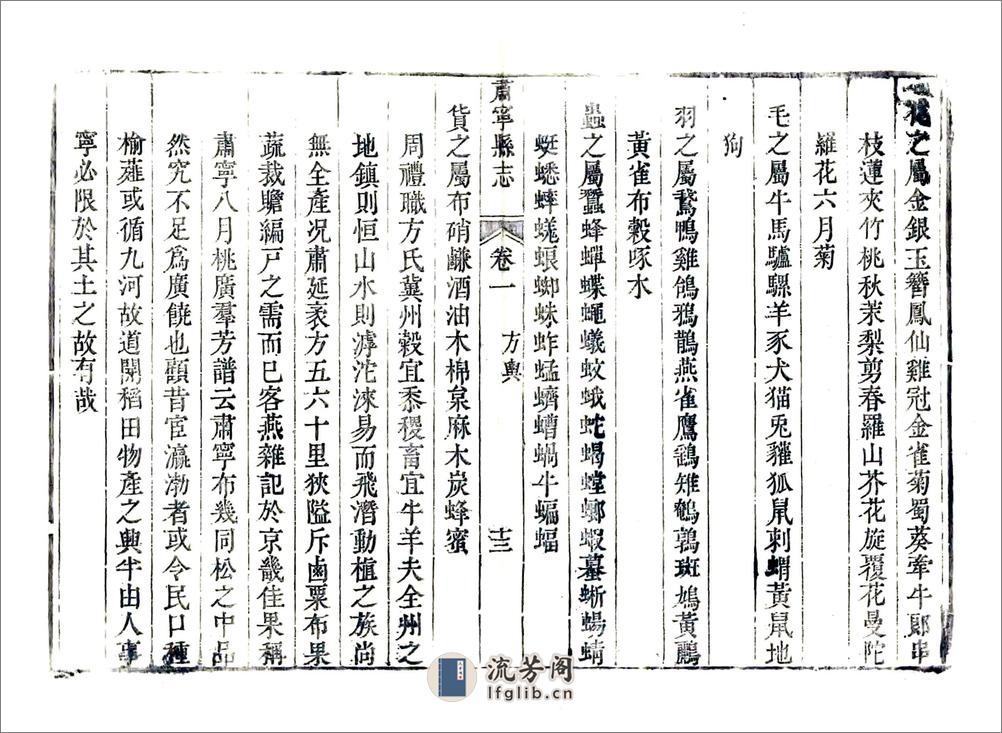 花之屬金銀玉簪鳳仙雞冠金雀菊蜀葵牽牛郎串
枝蓮夾竹桃秋茉梨剪春羅山芥花旋覆花曼陀
羅花六月菊
毛之屬牛馬驢騾羊豕犬猫兎貛狐鼠刺蝟黃鼠地
狗
羽之屬鵞鴨雞鴿鴉鵲燕雀鷹鷂雉鵪鶉斑鳩黃鸝
黃雀布穀啄木
蟲之屬蠶蜂蟬蝶蠅蟻蚊蛾蛇蝎螳螂蝦蟇蜥蜴蜻
蜓蟋蟀螻蜋蜘蛛蚱蜢蠐螬蝸牛蝙蝠
肅寧縣志 卷一 方輿 十三
貨之屬布硝鹻酒油木棉枲麻木炭蜂蜜
周禮職方氏冀州穀宜黍稷畜宜牛羊夫全州之
地鎮則恒山水則滹沱淶易而飛潛動植之族尚
無全產况肅延袤方五六十里狹隘斥鹵粟布果
蔬裁贍編戸之需而已客燕雜記於京畿佳果稱
肅寧八月桃廣羣芳譜云肅寧布幾同松之中品
然究不足爲廣饒也顧昔宦瀛渤者或令民口種
榆薤或循九河故道開稻田物產之興半由人事
寧必限於其土之故有哉
流芳阁
lfglib.cn